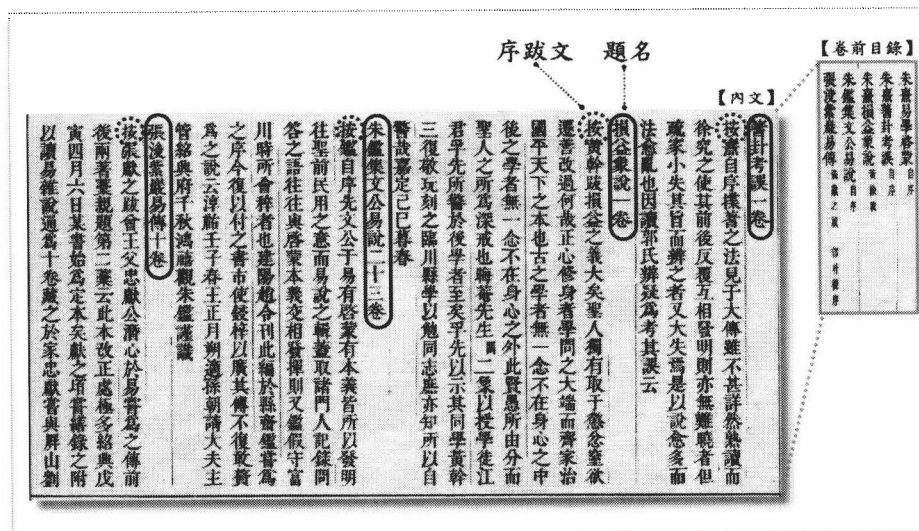 序跋文
題名
【內文】
【卷前目錄】
朱熹易學啓蒙 自序
朱熹蓍卦考誤 自序
朱熹損益象說 黃榦跋
朱鑑集文公易說 自序
張浚紫巖易傳 張獻之跋
蓍卦考誤一卷
按熹自序揲蓍之法見于大傳雖不甚詳然熟讀而
徐究之使其前後反覆互相發明則亦無難曉者但
疏家小失其旨而辨之者又大失焉是以說愈多而
法愈亂也因讀郭氏辨疑爲考其誤云
損益象說一卷
按黃榦跋損益之義大矣聖人獨有取于懲忿窒欲
遷善改過何哉正心修身者學問之大端而齊家治
國平天下之本也古之學者無一念不在身心之中
後之學者無一念不在身心之外此賢愚所由分而
聖人之所爲深戒也晦菴先生 二象以授學徒江
君孚先所警於後學者至矣孚先以示其同學黃榦
三復敬玩刻之臨川縣學以勉同志庶亦知所以自
警哉嘉定己巳暮春
朱鑑集文公易說二十三卷
按鑑自序先文公于易有啓蒙有本義皆所以發明
往聖前民用之意而易說之輯蓋取諸門人記錄問
答之語往往與啓蒙本義交相發揮則又鑑假守富
川時所會稡者也建陽趙令刊此編於縣齋鑑嘗爲
之序今復以付之書市使鋟梓以廣其傳不復敢贅
爲之說云淳祐壬子春王正月朔適孫朝請大夫主
管紹興府千秋鴻禧觀朱鑑謹識
張浚紫巖易傳十卷
按張獻之跋曾王父忠獻公潛心於易嘗爲之傳前
後兩著稾親題第二藁云此本改正處極多紹興戊
寅四月六日某書始爲定本矣獻之頃嘗繕錄之附
以讀易雜說通爲十卷藏之於家忠獻嘗與屏山劉